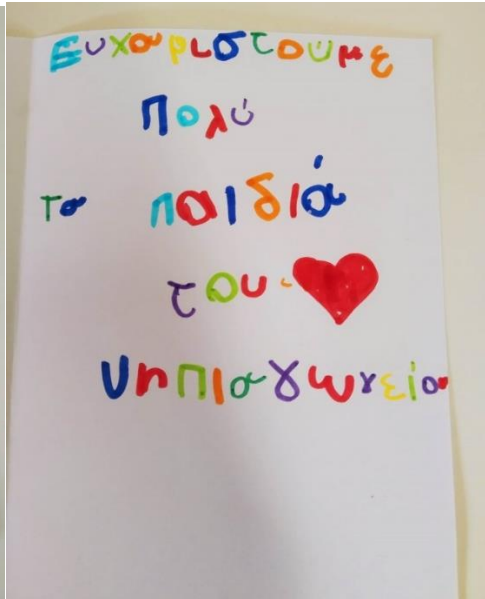 Ευχαριστούμε
Πολύ
Τα παιδιά
του
νηπιαγωγείου